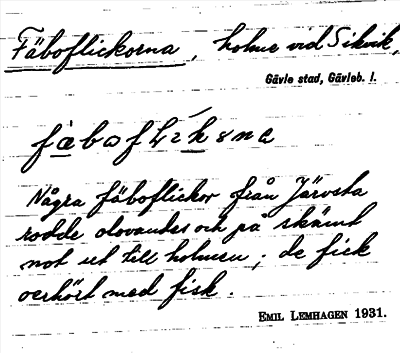 Fäboflickorna, holme vid Sikvik,
Gävle stad, Gävleb. l.
Några fäboflickor från Järvsta
rodde olovandes och på skämt
not ut till holmen; de fick
oerhört med fisk.
EMIL LEMHAGEN 1931.